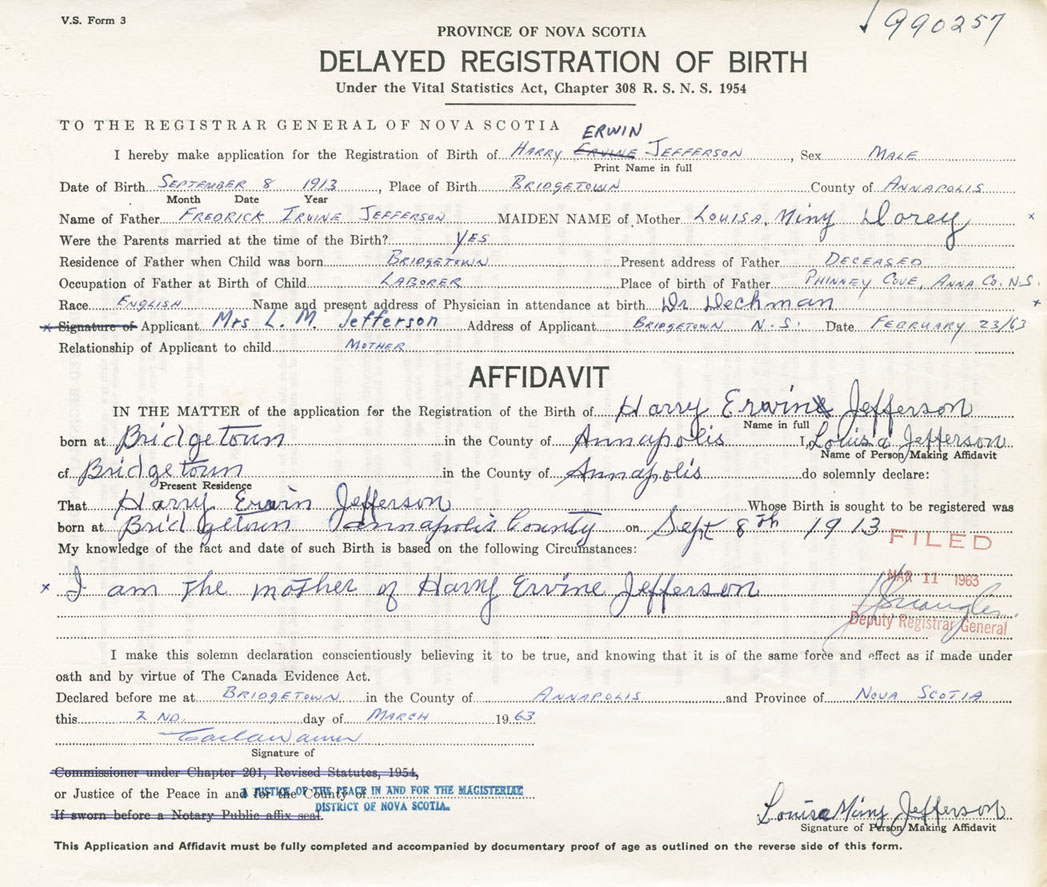 V.S. Form 3
990257
PROVINCE OF NOVA SCOTIA
DELAYED REGISTRATION OF BIRTH
Under the Vital Statistics Act, Chapter 308 R. S. N. S. 1954
TO THE REGISTRAR GENERAL OF NOVA SCOTIA
ERWIN
I hereby make application for the Registration of Birth of HARRY ERVINE JEFFERSON, Sex MALE
Print Name in full
Date of Birth SEPTEMBER 8 1913, Place of Birth BRIDGETOWN County of ANNAPOLIS
Month Date Year
Name of Father FREDRICK IRVINE JEFFERSON MAIDEN NAME of Mother LOUISA, Miny Dorey x
Were the Parents married at the time of the Birth? YES
Residence of Father when Child was born BRIDGETOWN Present address of Father DECEASED
Occupation of Father at Birth of Child LABORER Place of birth of Father PHINNEY COVE, ANNA CO. N.S.
Race ENGLISH Name and present address of Physician in attendance at birth Dr Dechman x
x Signature of Applicant Mrs L. M. Jefferson Address of Applicant BRIDGETOWN N.S. Date FEBRUARY 23/63
Relationship of Applicant to child MOTHER
AFFIDAVIT
IN THE MATTER of the application for the Registration of the Birth of Harry Erwine Jefferson
Name in full
born at Bridgetown in the County of Annapolis I, Louisa Jefferson
Name of Person Making Affidavit
of Bridgetown in the County of Annapolis do solemnly declare:
Present Residence
That Harry Erwin Jefferson Whose Birth is sought to be registered was
born at Bridgetown Annapolis County on Sept 8th 1913
FILED
My knowledge of the fact and date of such Birth is based on the following Circumstances:
MAR 11 1963
x I am the mother of Harry Ervine Jefferson
Deputy Registrar General
I make this solemn declaration conscientiously believing it to be true, and knowing that it is of the same force and effect as if made under
oath and by virtue of The Canada Evidence Act.
Declared before me at BRIDGETOWN in the County of ANNAPOLIS and Province of NOVA SCOTIA
this 2 ND. day of MARCH 1963
Signature of
Commissioner under Chapter 201, Revised Statutes, 1954,
or Justice of the Peace in and for the County of
A JUSTICE OF THE PEACE IN AND FOR THE MAGISTERIAL
DISTRICT OF NOVA SCOTIA.
If sworn before a Notary Public affix seal.
Louisa Miny Jefferson
Signature of Person Making Affidavit
This Application and Affidavit must be fully completed and accompanied by documentary proof of age as outlined on the reverse side of this form.